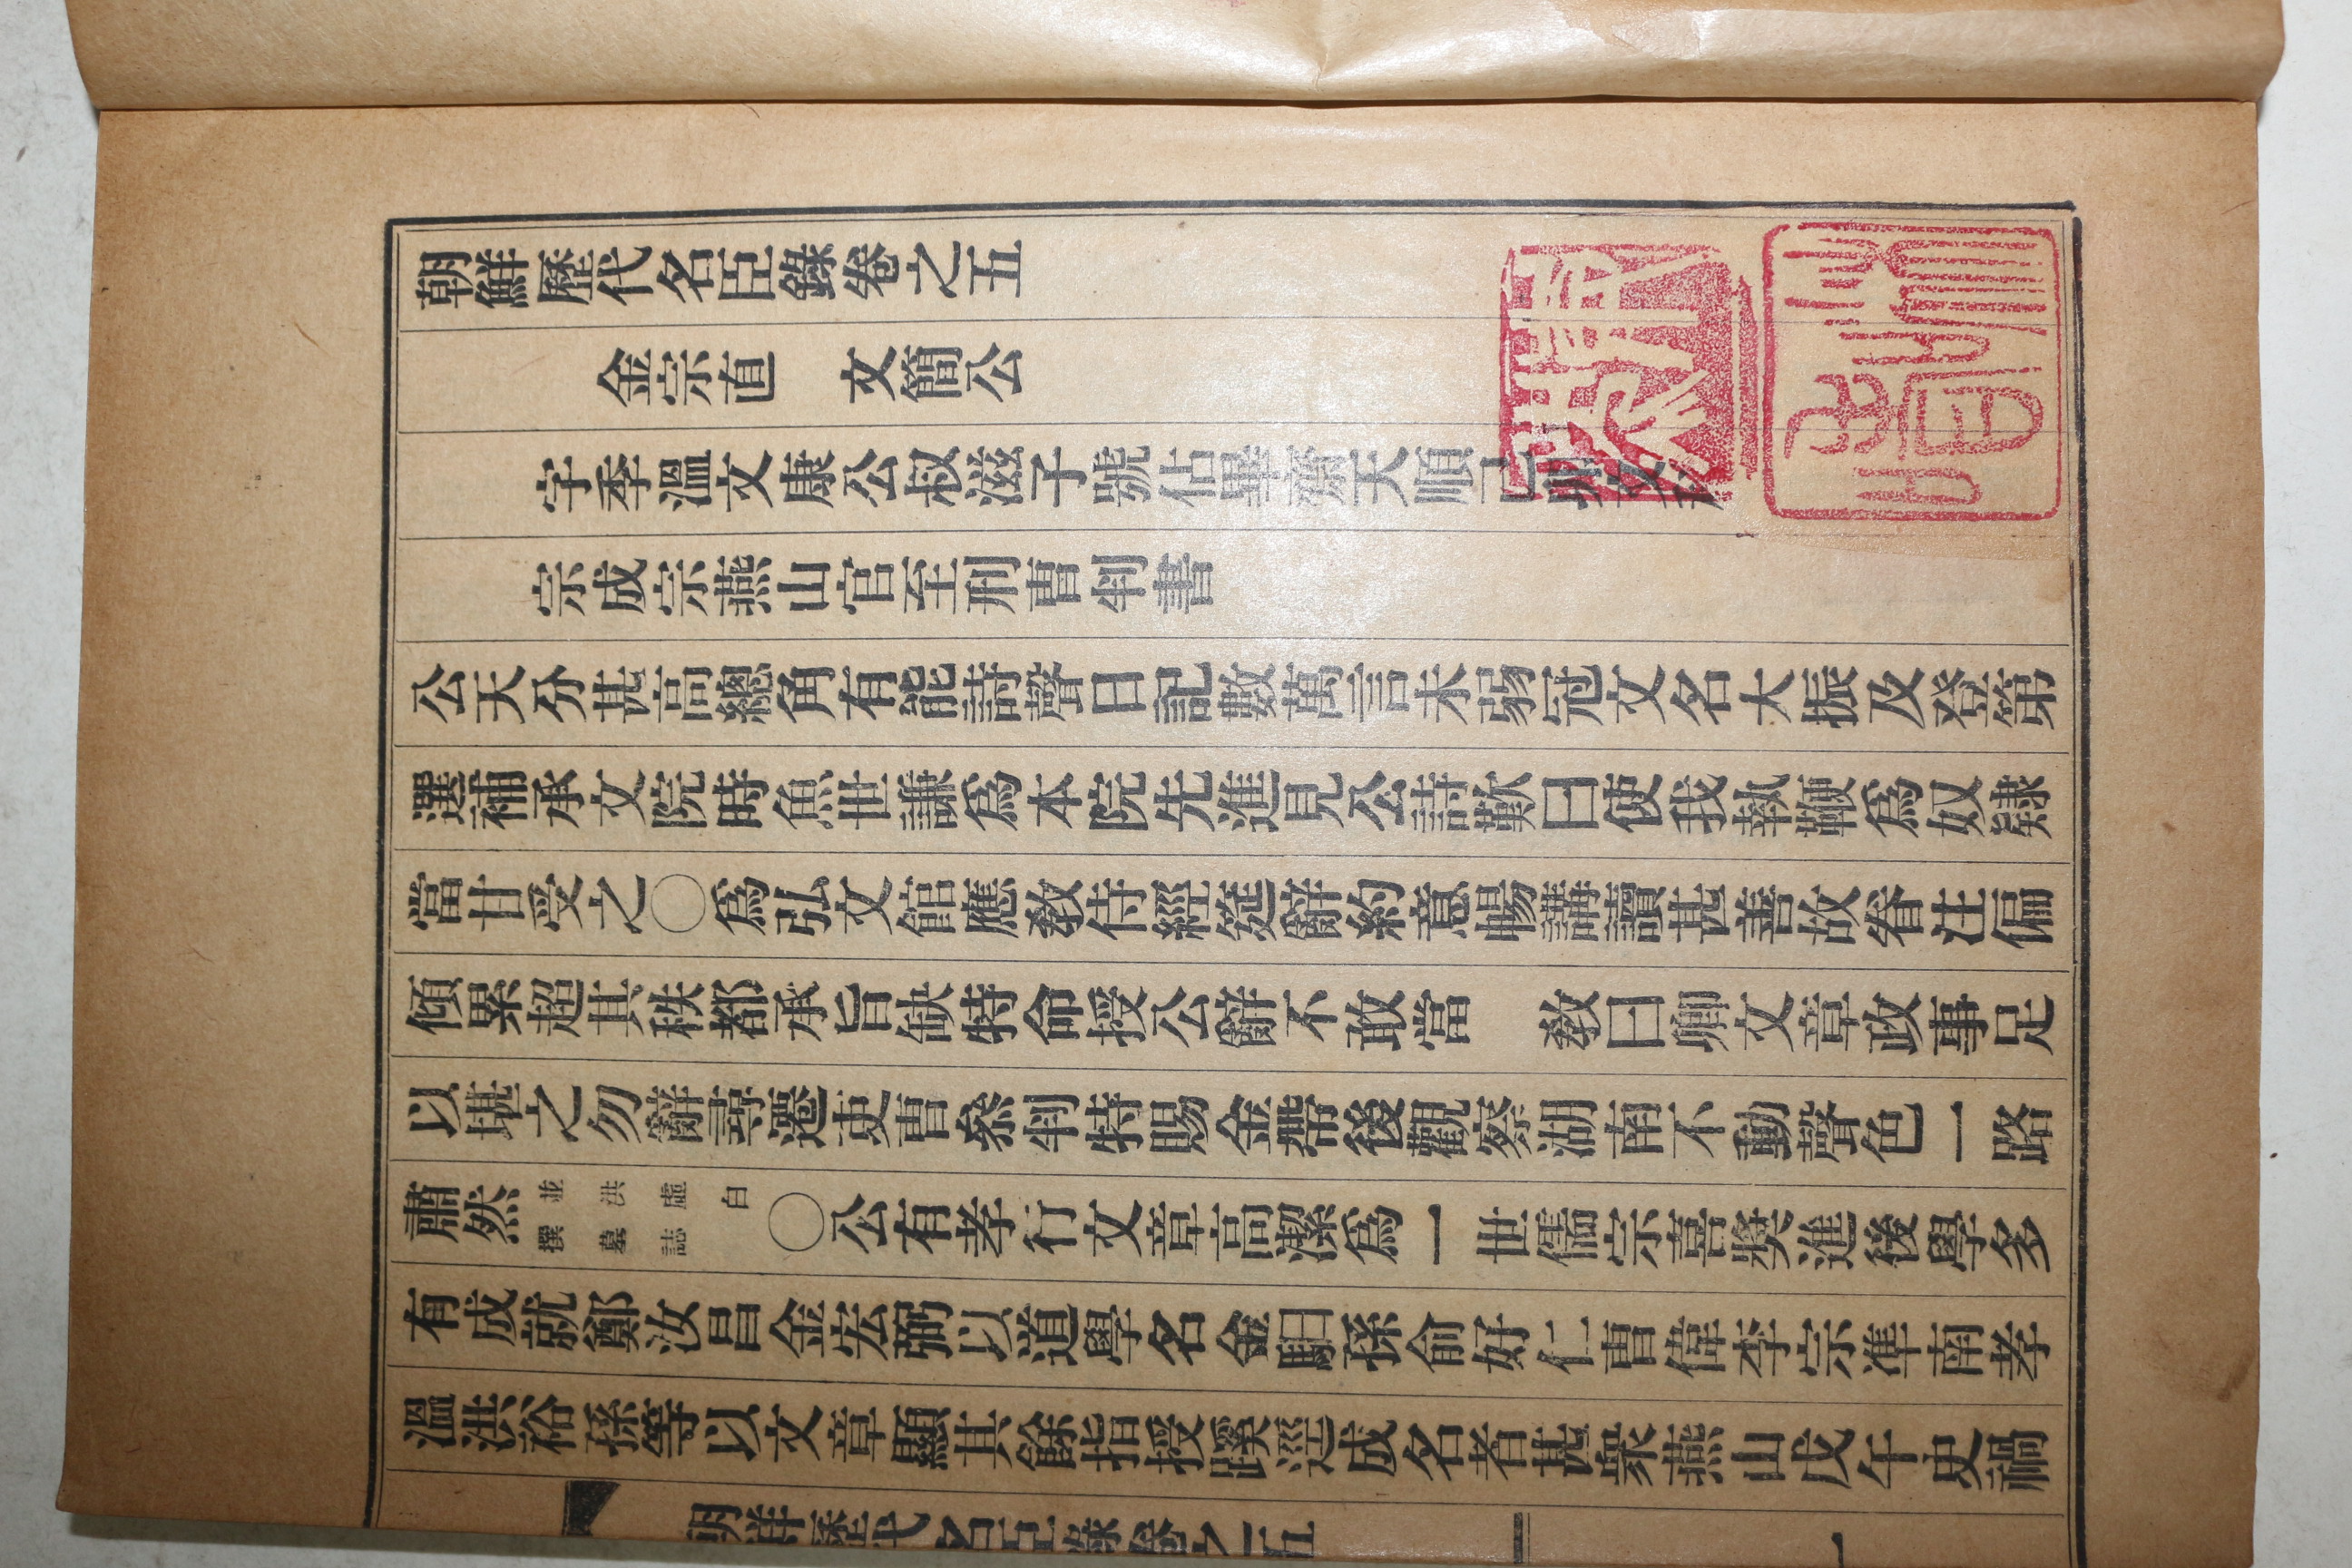 朝鮮歷代名臣錄卷之五
金宗直 文簡公
字季溫文康公叔滋子號佔畢齋天順己卯文科
宗成宗燕山官至刑曹判書
公天分甚高總角有能詩聲日記數萬言未弱冠文名大振及登第
選補承文院時魚世謙爲本院先進見公詩歎曰使我執鞭爲奴隷
當甘受之〇爲弘文館應敎侍經筵辭約意暢講讀甚善故眷注偏
傾累超其秩都承旨缺特命授公辭不敢當 敎曰卿文章政事足
以堪之勿辭尋遷吏曹參判特賜金帶後觀察湖南不動聲色一路
肅然並洪虛白撰墓誌〇公有孝行文章高潔爲一世儒宗喜奬進後學多
有成就鄭汝昌金宏弼以道學名金馹孫俞好仁曹偉李宗準南孝
溫洪裕孫等以文章顯其餘指授蹊逕成名者甚衆燕山戊午史禍
朝鮮歷代名臣錄卷之五 一